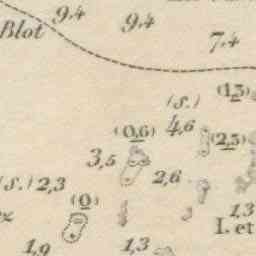 9,4
9,4
Blot
7,4
(1,3)
(S.)
(0,6) 4,6
(2,5)
3,5
2,6
(S.) 2,3
(0)
1,3
I. et
1,9
1,3